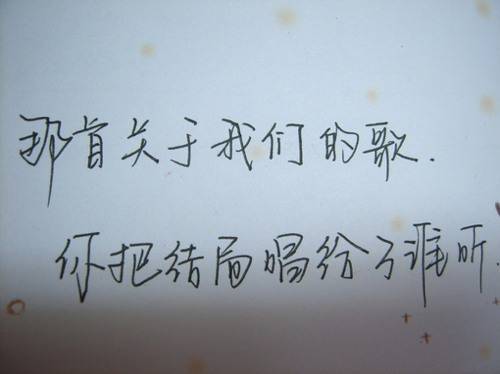 那首关于我们的歌.
你把结局唱给了谁听.